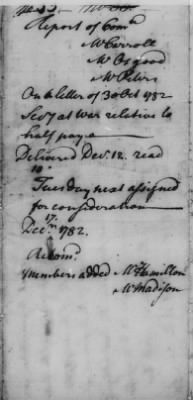 Report of Comee
Mr Carroll
Mr Osgood
Mr Peters
On a letter of 30 Oct 1782
Secy at War relative to
half pay
Delivered Decr. 12. read
Tuesday next assigned
for consideration
17th
Decr. 1782.
Recomd.
Members added Mr Hamilton
Mr Madison